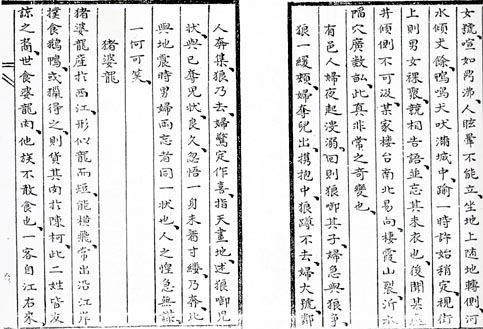 女號喧如鼎沸、人眩暈不能立、坐地上隨地轉側、河
水傾丈餘、鴨鳴犬吠滿城中、踰一時許始稍定、視街
上則男女裸聚、競相告語、並忘其未衣也、後聞某處
井傾側不可汲、某家樓台南北易向、棲霞山裂、沂水
陷穴廣數畝、此真非常之奇變也、
有邑人婦夜起溲溺、回則狼啣其子、婦急與狼爭、
狼一緩頰、婦奪兒出、攜抱中、狼蹲不去、婦大號、鄰
人奔集、狼乃去、婦驚定作喜、指天畫地、述狼啣兒
狀、與己奪兒狀、良久、忽悟一身未着寸縷、乃奔、此
與地震時男婦兩忘者同一狀也、人之惶急無謀
一何可笑、
猪婆龍
猪婆龍產於西江、形似龍而短、能橫飛、常出沿江岸
撲食鵝鴨、或獵得之、則貨其肉於陳柯、此二姓皆友
諒之裔、世食婆龍肉、他族不敢食也、一客自江右來